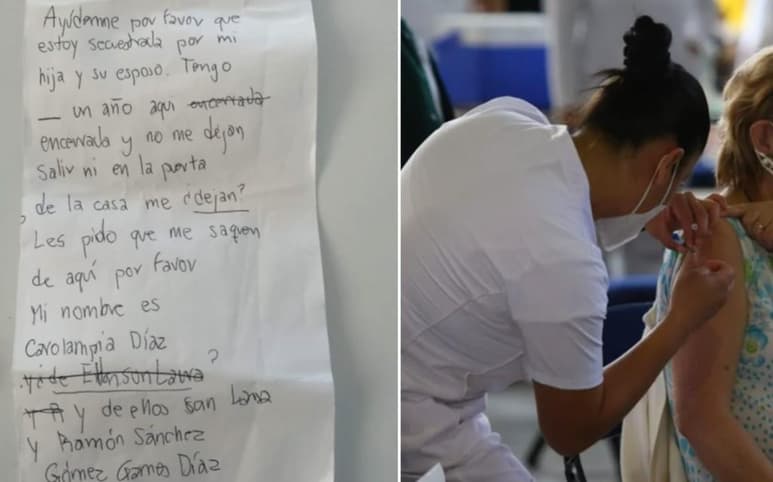 Ayúdenme por favor que
estoy secuestrada por mi
hija y su esposo. Tengo
_ un año aquí encerrada
encerrada y no me dejan
salir ni en la puerta
, de la casa me ¿dejan?
Les pido que me saquen
de aquí por favor
Mi nombre es
Carolampia Díaz
de Ellos son Laura ?
y de ellos son Lama
y Ramón Sánchez
Gómez Gomes Díaz